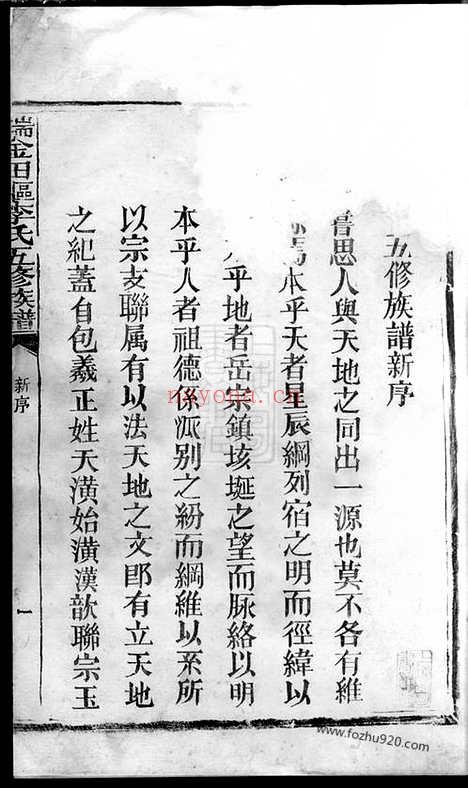 五修族譜新序
嘗思人與天地之同出一源也莫不各有維
焉本乎天者星辰綱列宿之明而徑緯以
乎地者岳宗鎮垓埏之望而脉絡以明
本乎人者祖德係泒别之紛而綱維以系所
以宗支聯属有以法天地之文郎有立天地
之紀蓋自包羲正姓天潢始潢漢歆聯宗玉
瑞金田區李氏五修族譜
新序
一
nayona.cn
www.fozhu920.com